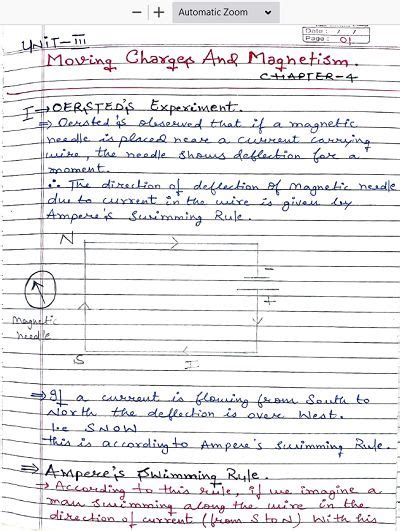 Automatic Zoom
Date: / /
Page: 01
UNIT-III
Moving Charges And Magnetism.
CHAPTER-4
I → OERSTED'S Experiment.
⇒ Oersted is observed that if a magnetic
needle is placed near a current carrying
wire, the needle shows deflection for a
moment.
∴ The direction of deflection of magnetic needle
due to current in the wire is given by
Ampere's Swimming Rule.
N
-
+
Magnetic
needle
S
I
⇒ If a current is flowing from South to
North the deflection is over West.
i.e SNOW
this is according to Ampere's swimming Rule.
⇒ Ampere's Swimming Rule.
→ According to this rule, if we imagine a
man swimming along the wire in the
direction of current (from S to N) with his